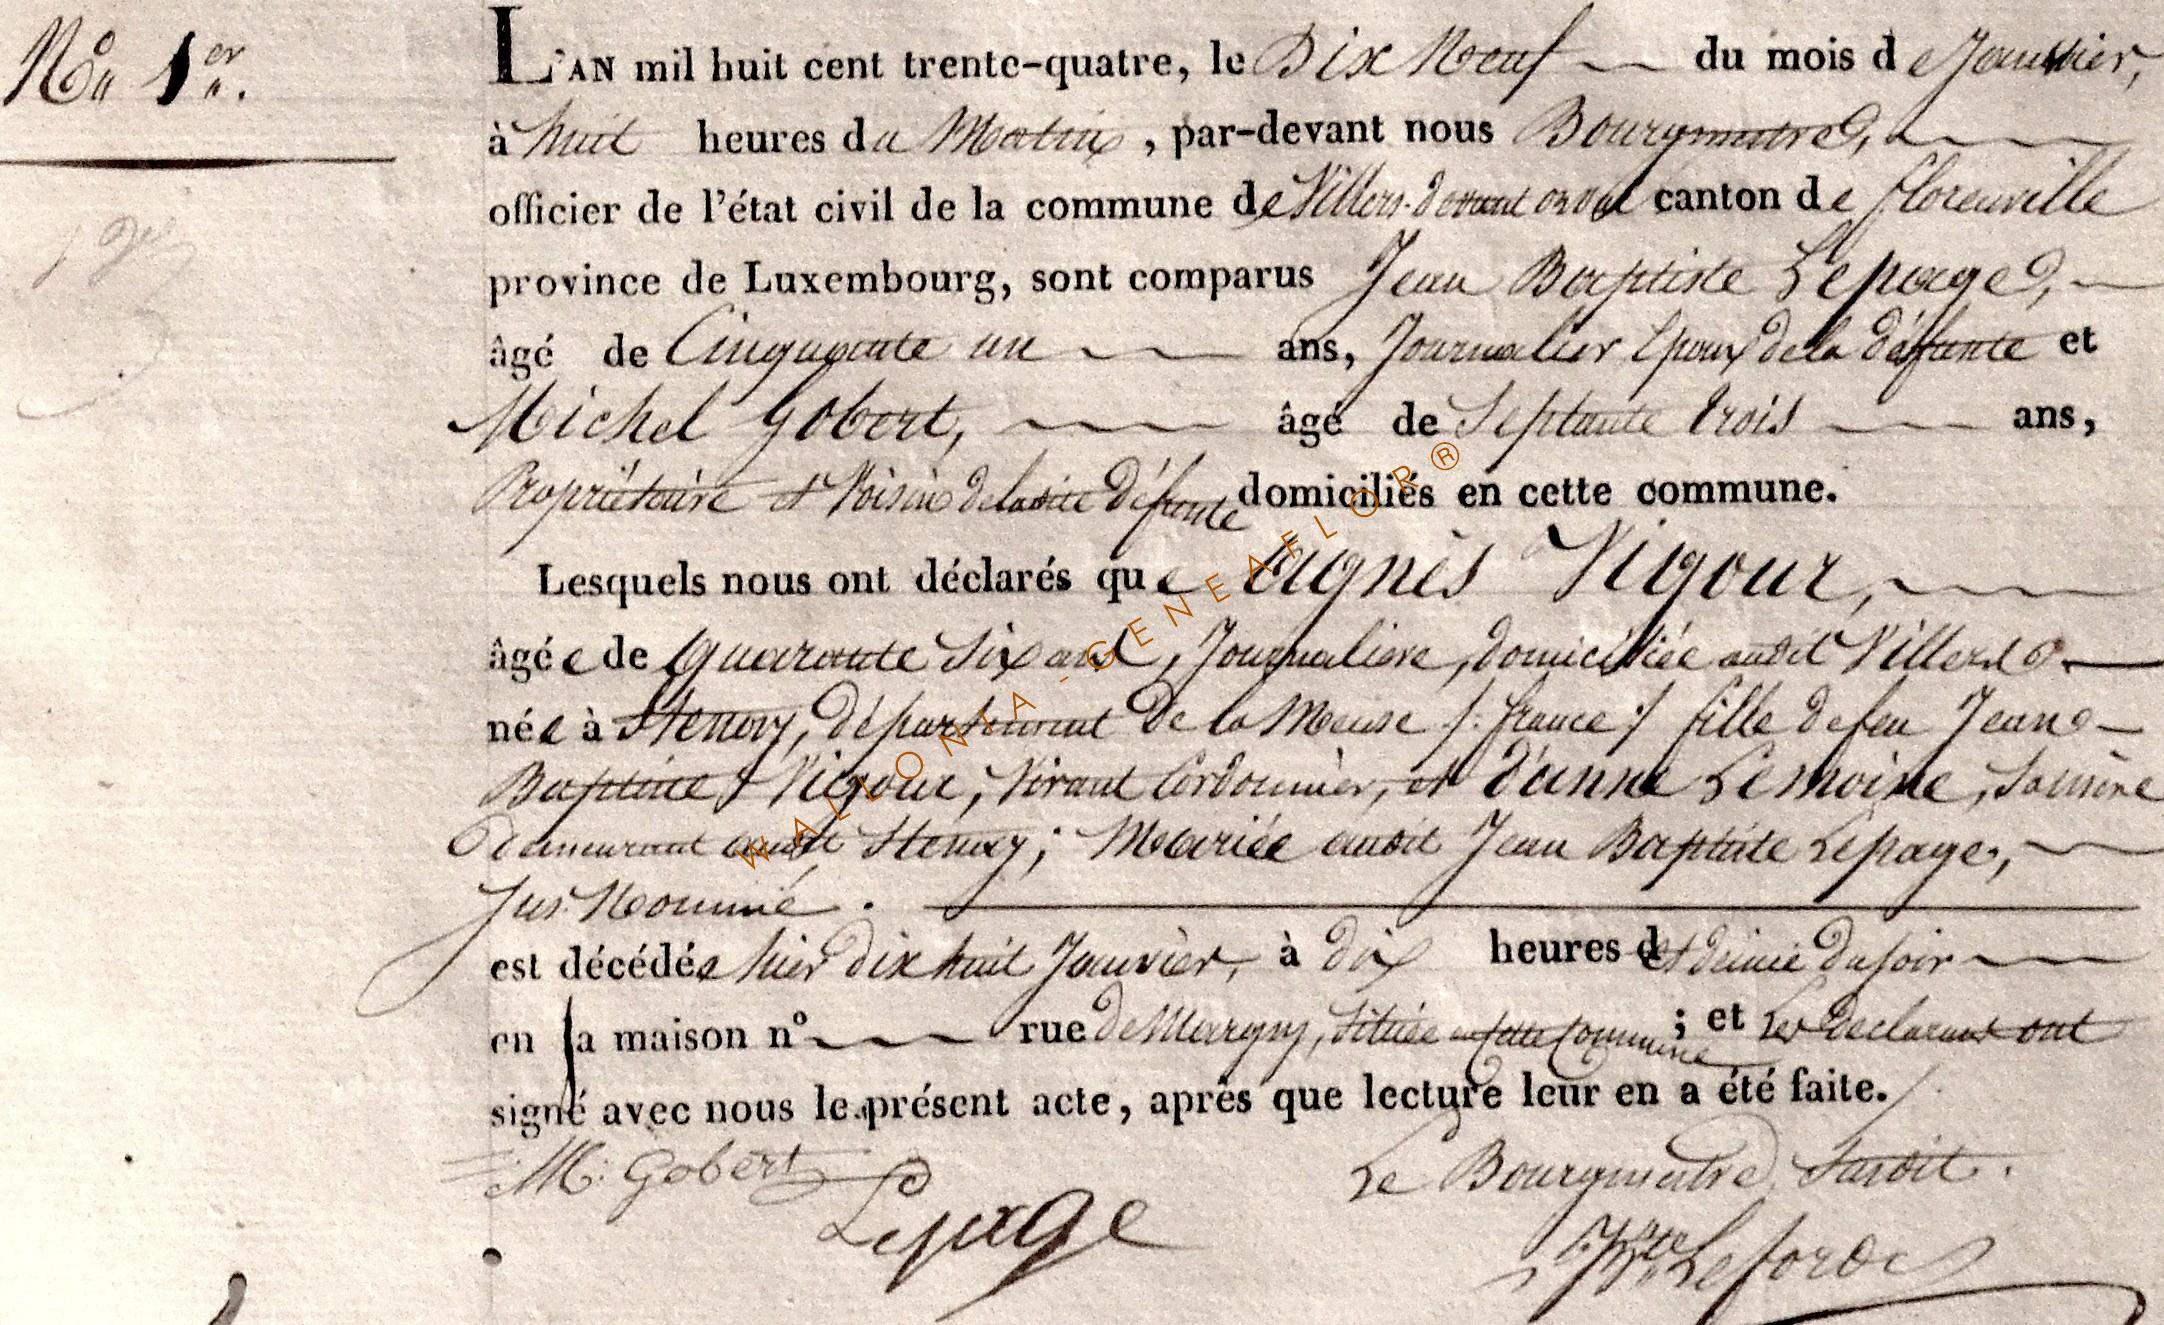 No 1er.
L'AN mil huit cent trente-quatre, le Dix Neuf du mois de Janvier,
à huit heures du Matin, par-devant nous Bourgmestre,
officier de l'état civil de la commune de Villers-devant orval canton de florenville
province de Luxembourg, sont comparus Jean Baptiste Lepage,
âgé de Cinquante un ans, Journalier Epoux de la défunte et
Michel Gobert, âgé de Septante trois ans,
Propriétaire et Voisin de ladite Défunte domiciliés en cette commune.
Lesquels nous ont déclarés que Agnès Vigour,
âgée de quarante Six ans, Journaliere, domiciliée audit Villers
née à Stenay, département de la Meuse /: france :/ fille de feu Jean
Baptiste Vigour, Vivant Cordonnier, et d'anne Lemoine, Sa mère
demeurant audit Stenay; Mariée audit Jean Baptiste Lepage,
Sus Nommé.
est décédée hier dix huit Janvier, à dix heures et demie du soir
en sa maison n° rue de Margny, située en cette Commune; et Les déclarans ont
signé avec nous le présent acte, après que lecture leur en a été faite.
M: Gobert
Lepage
Le Bourgmestre Susdit.
WALLONIA-GENEAFLOR®